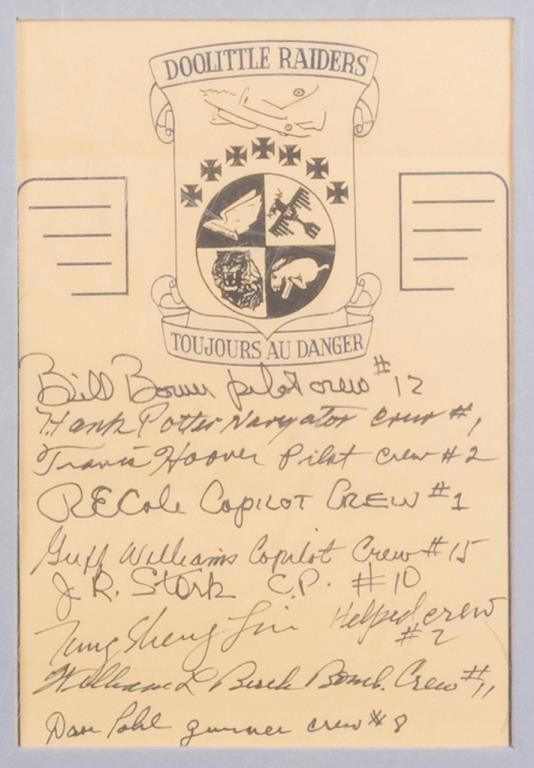 DOOLITTLE RAIDERS
TOUJOURS AU DANGER
Bill Bower pilot crew # 12
Hank Potter Navigator Crew #1
Travis Hoover Pilot Crew # 2
RECole COPILOT CREW #1
Griff Williams Copilot Crew # 15
J. R. Stork C.P. #10
Tung Sheng Liu Helped crew
#2
William L Birch Bomb. Crew #11
Dave Pohl gunner crew # 8